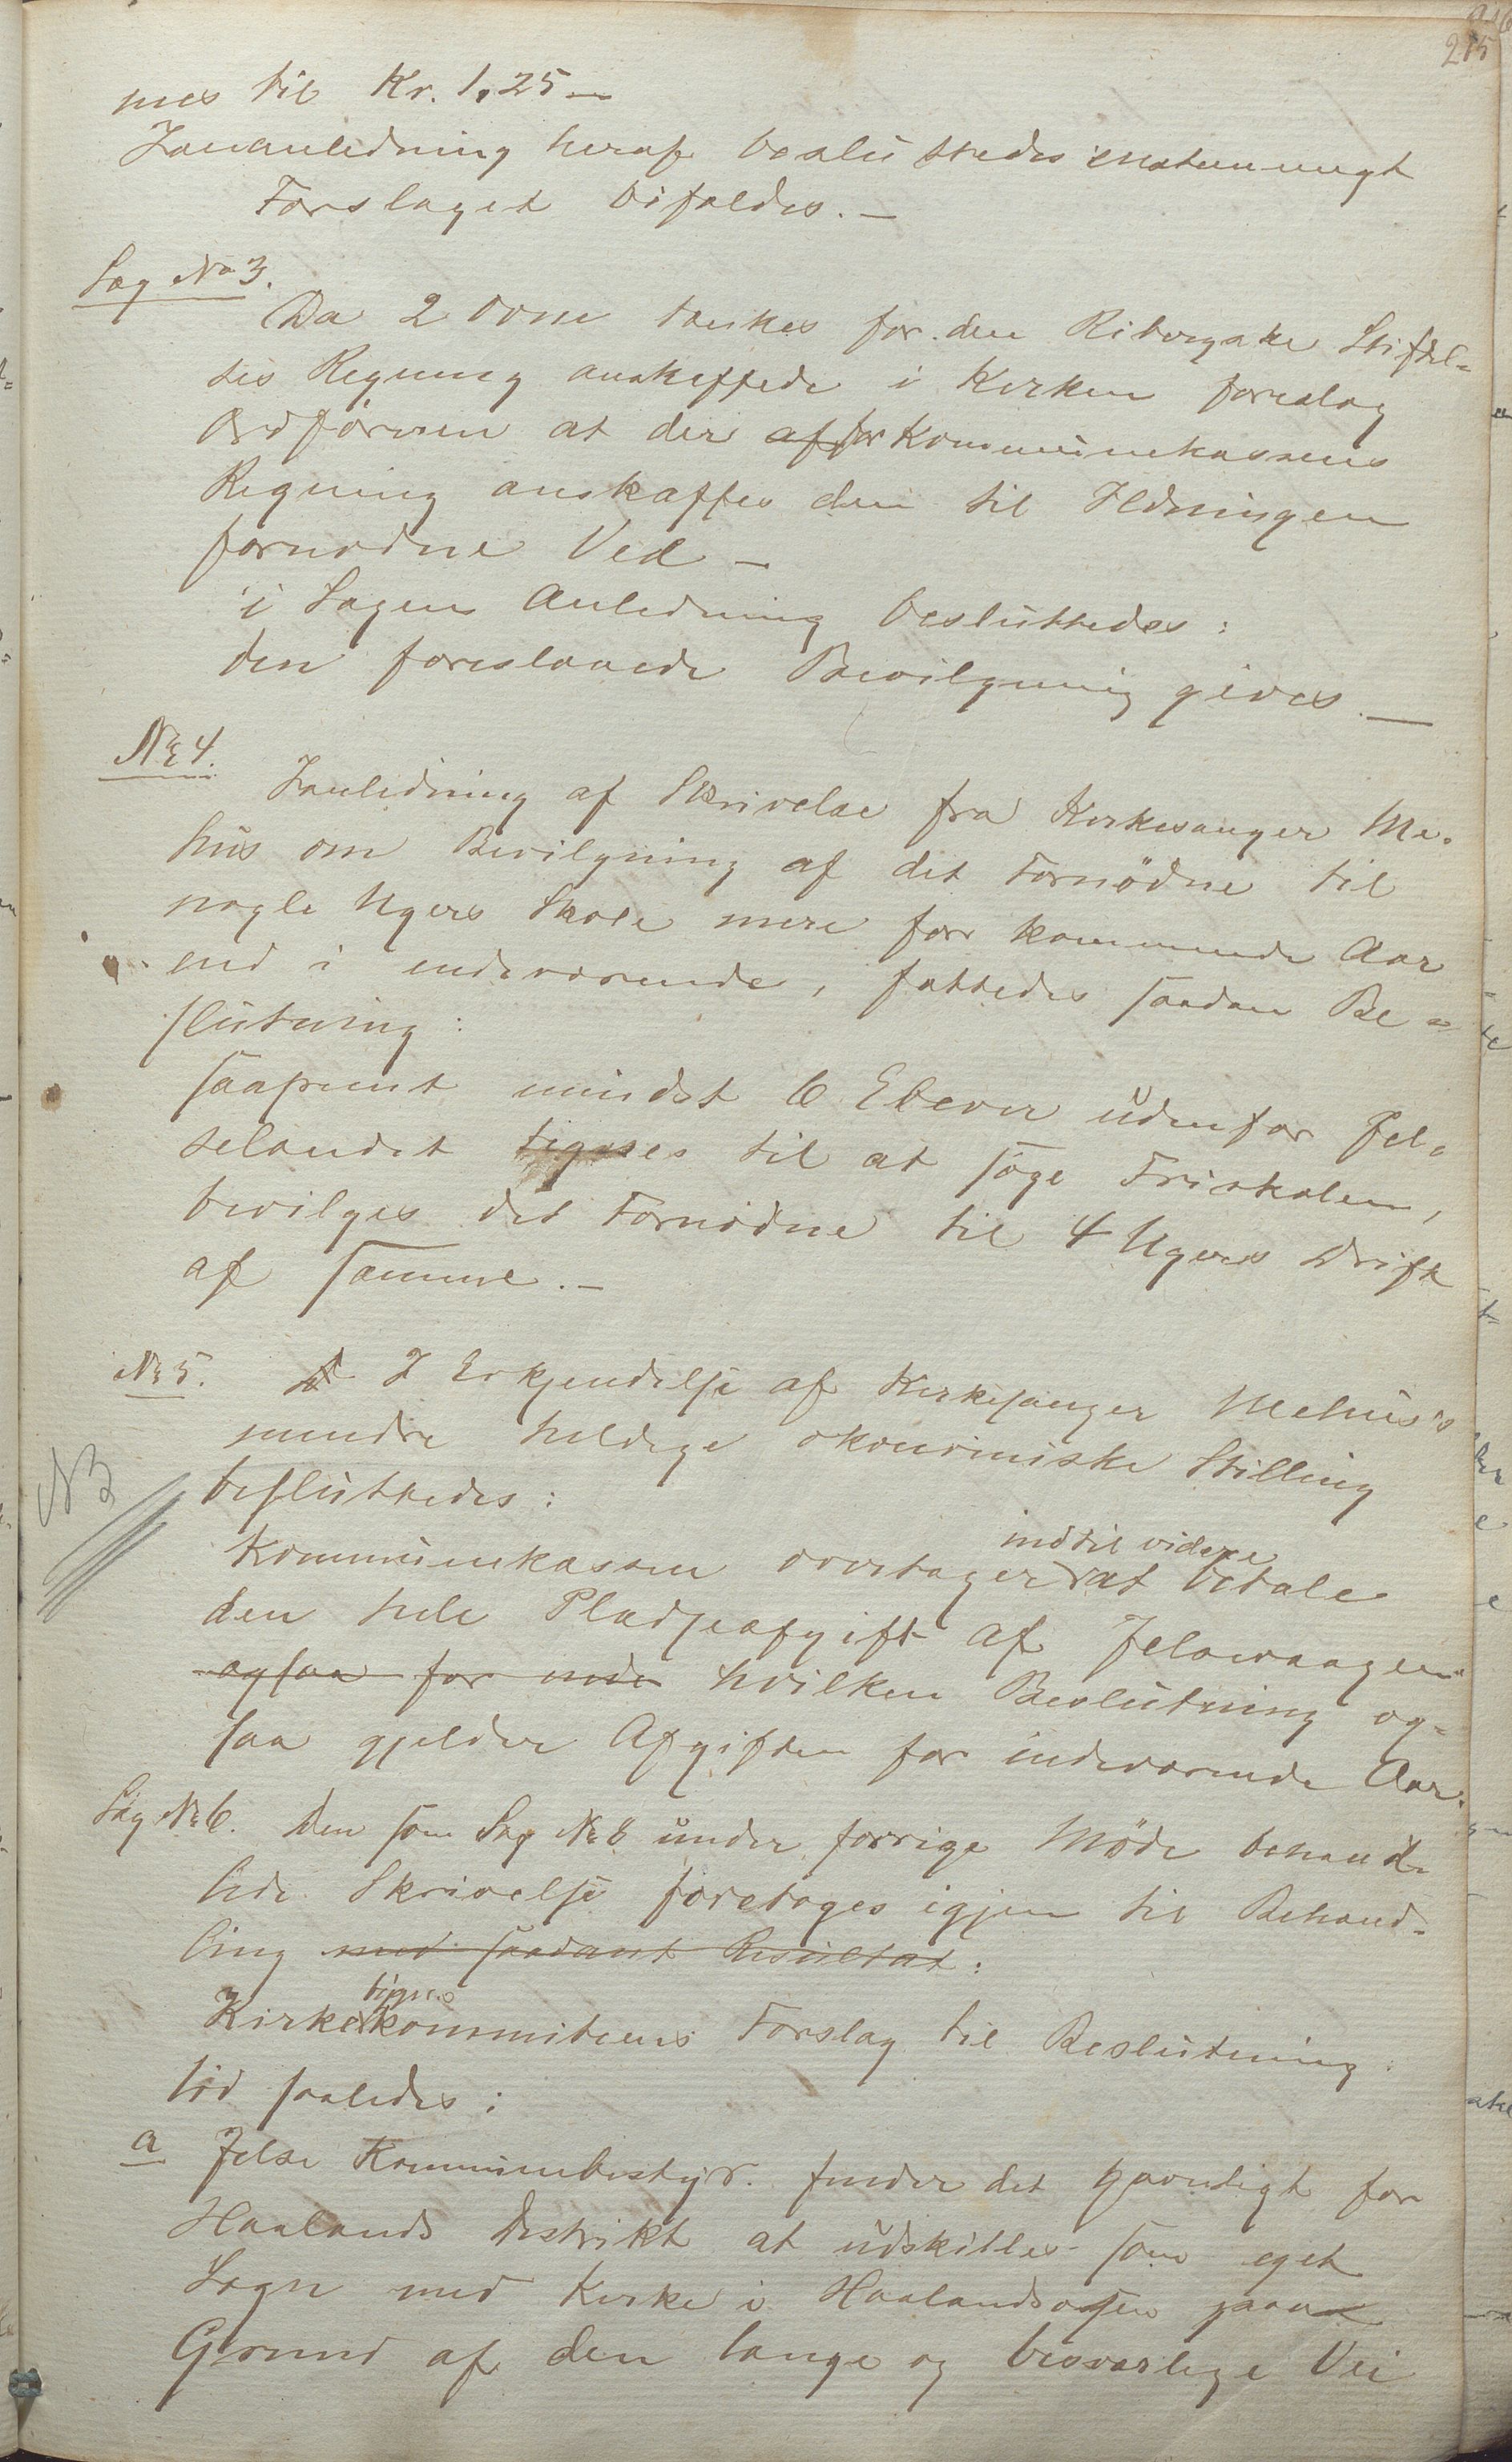 215
mes til Kr. 1,25 –
I anledning heraf besluttedes enstemmigt
Forslaget bifaldes. –
Sag No 3.
Da 2 Ovne tænkes for den Ribergske Stiftel-
ses Regning anskaffede i Kirken foreslog
Ordføreren at der af for Kommunekassens
Regning anskaffes den til Ildningen
fornødne Ved –
i Sagens Anledning besluttedes:
den foreslaaede Bevilgning gives. –
No 4.
I anledning af Skrivelse fra Kirkesanger Me-
hus om Bevilgning af det Fornødne til
nogle Ugers Skole mere for kommende Aar
end i indeværende, fattedes saadan Be-
slutning:
saafremt mindst 6 Elever udenfor Jel-
selandet tegnes til at søge Friskolen,
bevilges det Fornødne til 4 Ugers Drift
af samme. –
No 5.
I Erkjendelse af Kirkesanger Mehus's
mindre heldige økonomiske Stilling
NB
besluttedes:
indtil videre
Kommunekassen overtager at betale
den hele Pladseafgift af Jelsevaagen
ogsaa for inde hvilken Beslutning og-
saa gjelder Afgiften for indeværende Aar.
Sag No 6. Den som Sag No 8 under forrige Møde behand-
lede Skrivelse foretages igjen til Behand-
ling med saadant Resultat:
tilsyns
Kirkekommiteens Forslag til Beslutning
lød saaledes:
a Jelse Kommunebestyr. finder det gavnligt for
Haalands Distrikt at udskilles som eget
Sogn med Kirke i Haalandsosen paa
Grund af den lange og besværlige Vei